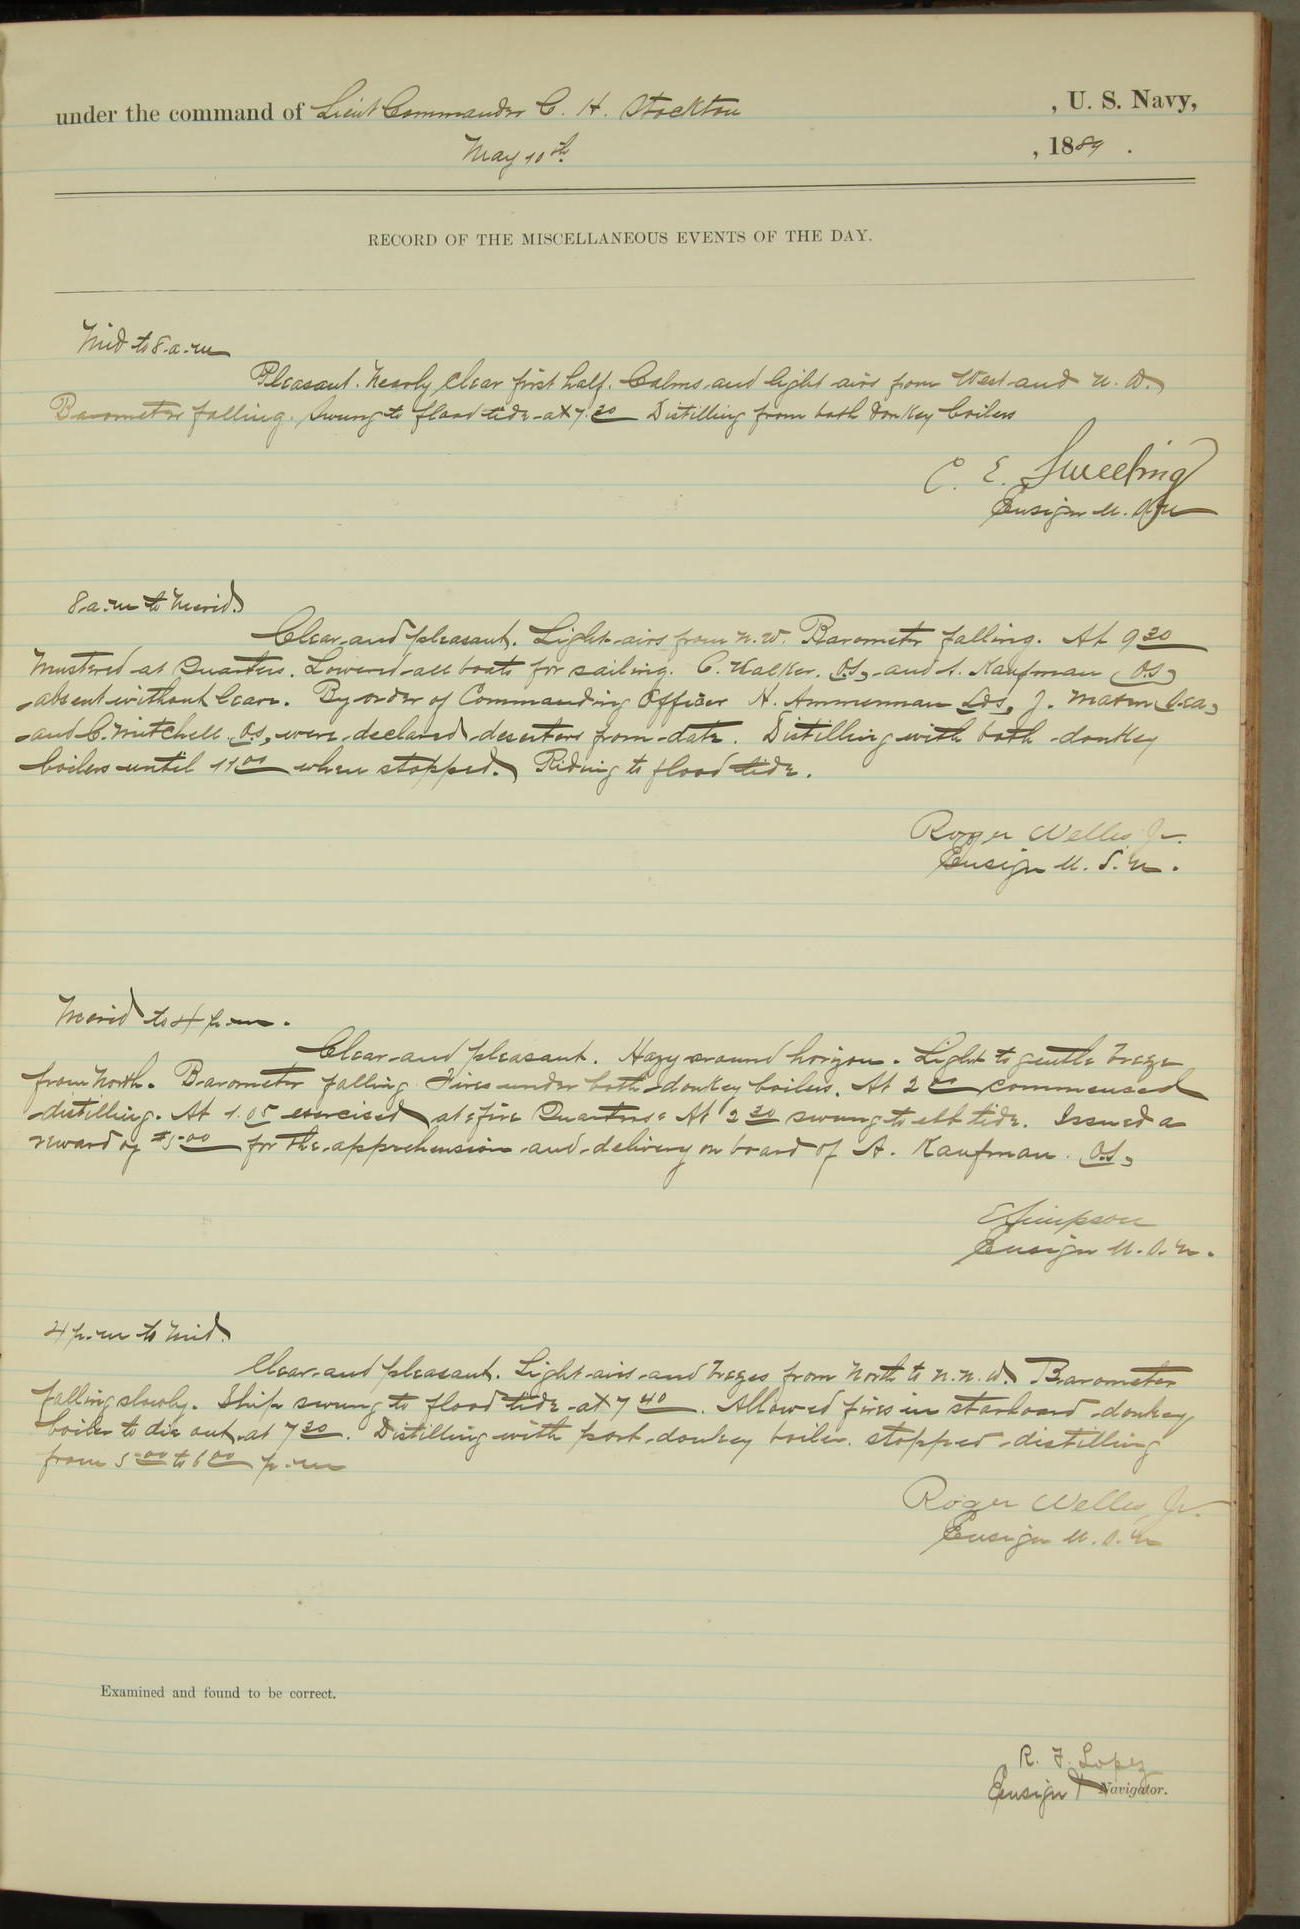 under the command of Lieut Commander C. H. Stockton , U. S. Navy,
May 10th , 1889 .
RECORD OF THE MISCELLANEOUS EVENTS OF THE DAY.
Mid to 8 a.m
Pleasant. Nearly clear first half. Calms and light airs from West and N. W.
Barometer falling. Swung to flood tide at 7.30 Distilling from both donkey boilers
C. E.
Ensign U. S. N
8 a.m to Merid.
Clear and pleasant. Light airs from N. W. Barometer falling. At 9 30
mustered at Quarters. Lowered all boats for sailing. C. Walker. O.S, and A. Kaufman O.S,
absent without leave. By order of Commanding Officer H. Ammerman Lds, J. Mason Sea,
and C. Mitchell O.S, were declared deserters from date. Distilling with both donkey
boilers until 11 00 when stopped. Riding to flood tide.
Roger Welles Jr.
Ensign U. S. N.
Merid to 4 p.m.
Clear and pleasant. Hazy around horizon. Light to gentle breeze
from North. Barometer falling Fires under both donkey boilers. At 2 00 commenced
distilling. At 1.05 exercised at fire Quarters. At 2 30 swung to ebb tide. Issued a
reward of $5 00 for the apprehension and delivery on board of A. Kaufman. O.S,
E Simpson
Ensign U. S. N.
4 p.m to Mid.
Clear and pleasant. Light airs and breezes from North to N. N. W. Barometer
falling slowly. Ship swung to flood tide at 7 40. Allowed fires in starboard donkey
boiler to die out at 7 30. Distilling with port donkey boiler. stopped distilling
from 5 00 to 6 00 p.m
Roger Welles Jr.
Ensign U. S. N
Examined and found to be correct.
R. F. Lopez
Ensign & Navigator.